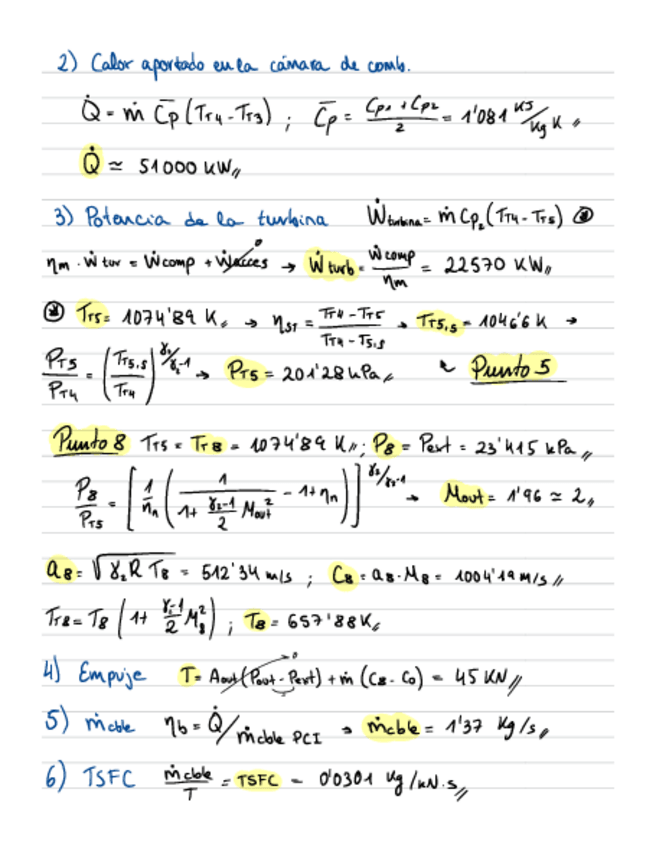 2) Calor aportado en la cámara de comb.
Q̇ = ṁ C̅p (TT4 - TT3) ; C̅p = (Cp1 + Cp2)/2 = 1'081 KJ/Kg K //
Q̇ ≃ 51000 KW //
3) Potencia de la turbina Ẇturbina = ṁ Cp2 (TT4 - TT5) ⊛
ηm · Ẇtur = Ẇcomp + Ẇacces → 0 → Ẇturb = Ẇcomp/ηm = 22570 KW //
⊛ TT5 = 1074'89 K // → ηST = (TT4 - TT5)/(TT4 - T5,s) → TT5,s = 1046'6 K →
PT5/PT4 = (TT5,s/TT4)^(γ2/γ2-1) → PT5 = 201'28 kPa // Punto 5
Punto 8 TT5 = TT8 = 1074'89 K // ; P8 = Pext = 23'415 kPa //
P8/PT5 = [1/ηn (1/(1 + (γ2-1)/2 Mout²) - 1 + ηn)]^(γ2/γ2-1) → Mout = 1'96 ≃ 2 //
a8 = √(γ2 R T8) = 512'34 m/s ; C8 = a8 · M8 = 1004'19 m/s //
TT8 = T8 (1 + (γ2-1)/2 M8²) ; T8 = 657'88 K //
4) Empuje T = Aout (Pout - Pext) → 0 + ṁ (C8 - C0) = 45 KN //
5) ṁcble ηb = Q̇/ṁcble PCI → ṁcble = 1'37 Kg/s //
6) TSFC ṁcble/T = TSFC = 0'0301 Kg/kN·s //